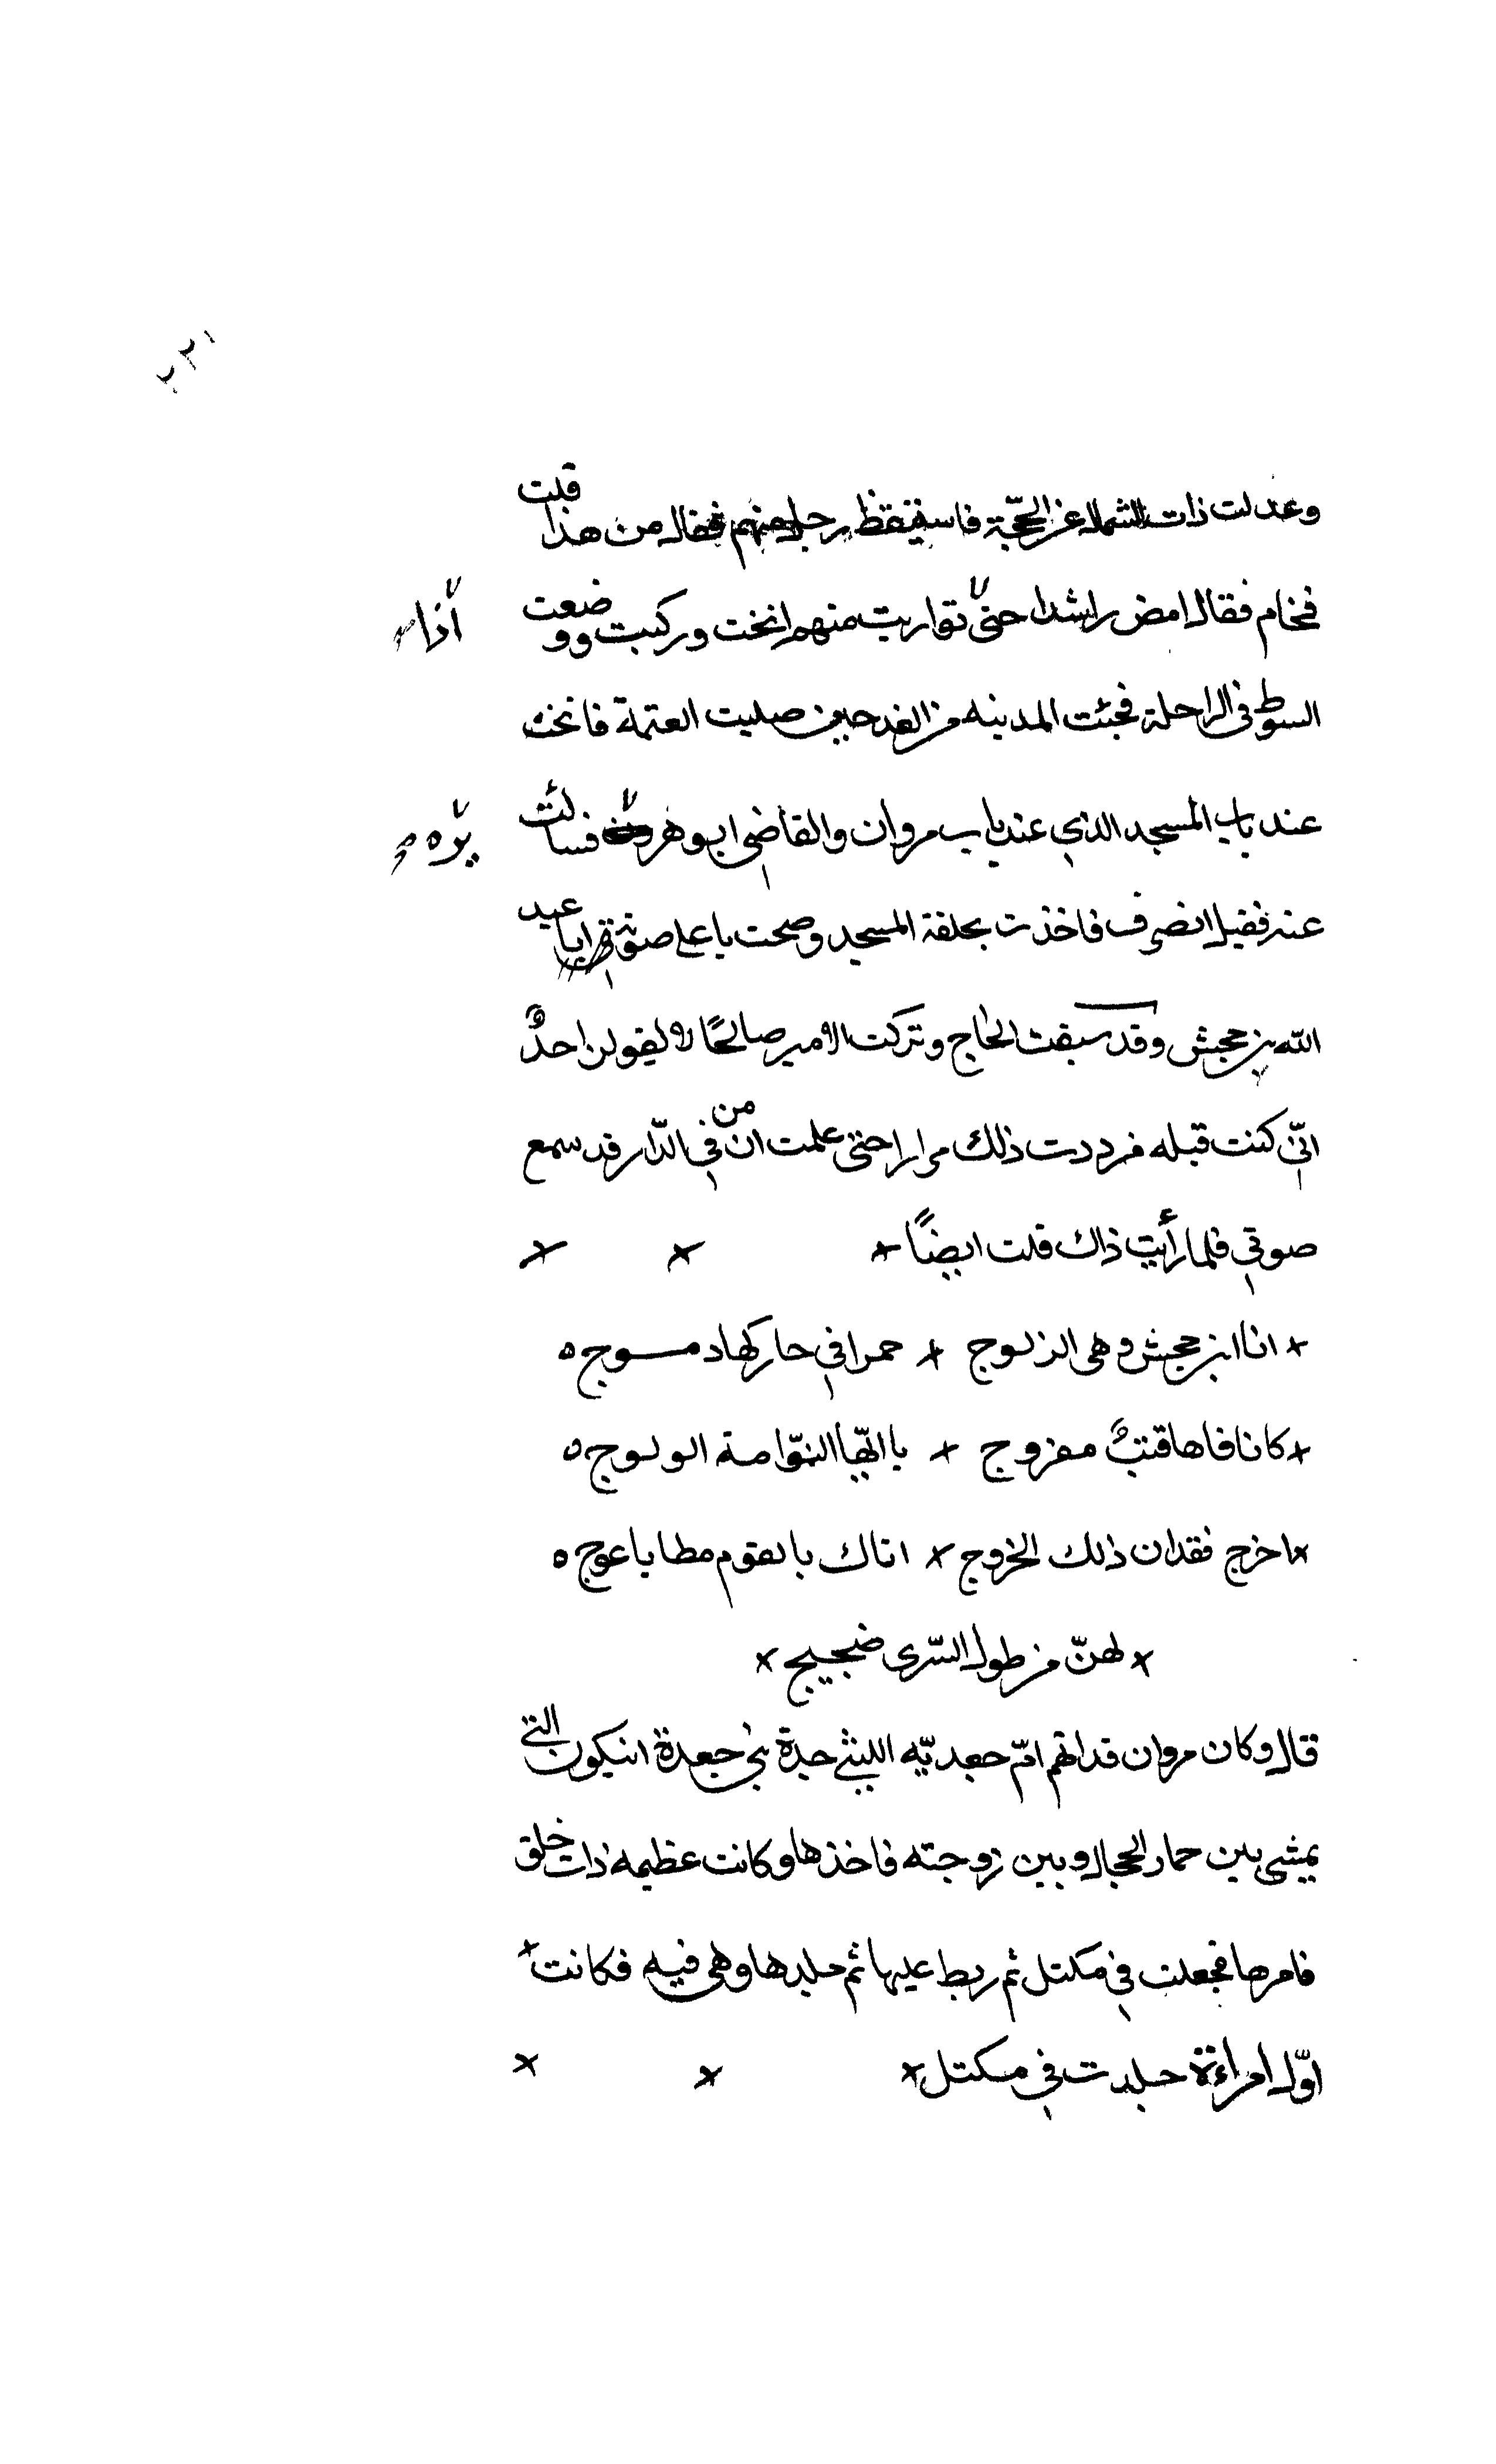 ٢٢١
وعدلت ذات الشمال عن الحجّة فاستيقظ رجل منهم فقال من هذا قلت
فخام فقال امض راشدا حتى تواريت منهم انخت وركبت ووضعت
اذا
السوط فى الراحلة فجئت المدينه من الغد حين صليت العتمة فانخت
عند باب المسجد الذي عند باب مروان والقاضي ابو هر فسالت
يره
عنه فقيل انصرف فاخذت بحلقة المسجد وصحت يا على صوتي انا عبيد
الله بن جحش وقد سبقت الحاج وتركت الامير صالحًا لا يقولن احدٌ
انّي كنت قبله فرددت ذلك مرارا حتى علمت ان من في الدّار قد سمع
صوتي فلما رأيت ذاك قلت ايضًا
انا ابن جحش وهى الزلوج حمرا في حاركها دموج
كانا فاها قتبٌ مفروج يا ايّها النوّامة الولوج
اخرج فقد ان ذلك الخروج اتاك بالقوم مطايا عوج
لهنّ من طول السّرى ضجيج
قال وكان مروان قد اتهم امّ جعديّه الليثي جدة بني جعدة ان يكون التي
يمشي بين حمار الحجال وبين زوجته فاخذها وكانت عظيمة ذات خلق
فامر بها فجعلت في مكتل ثم ربط عليها ثم جلدها وهى فيه فكانت
اوّل امراءة جلدت في مكتل